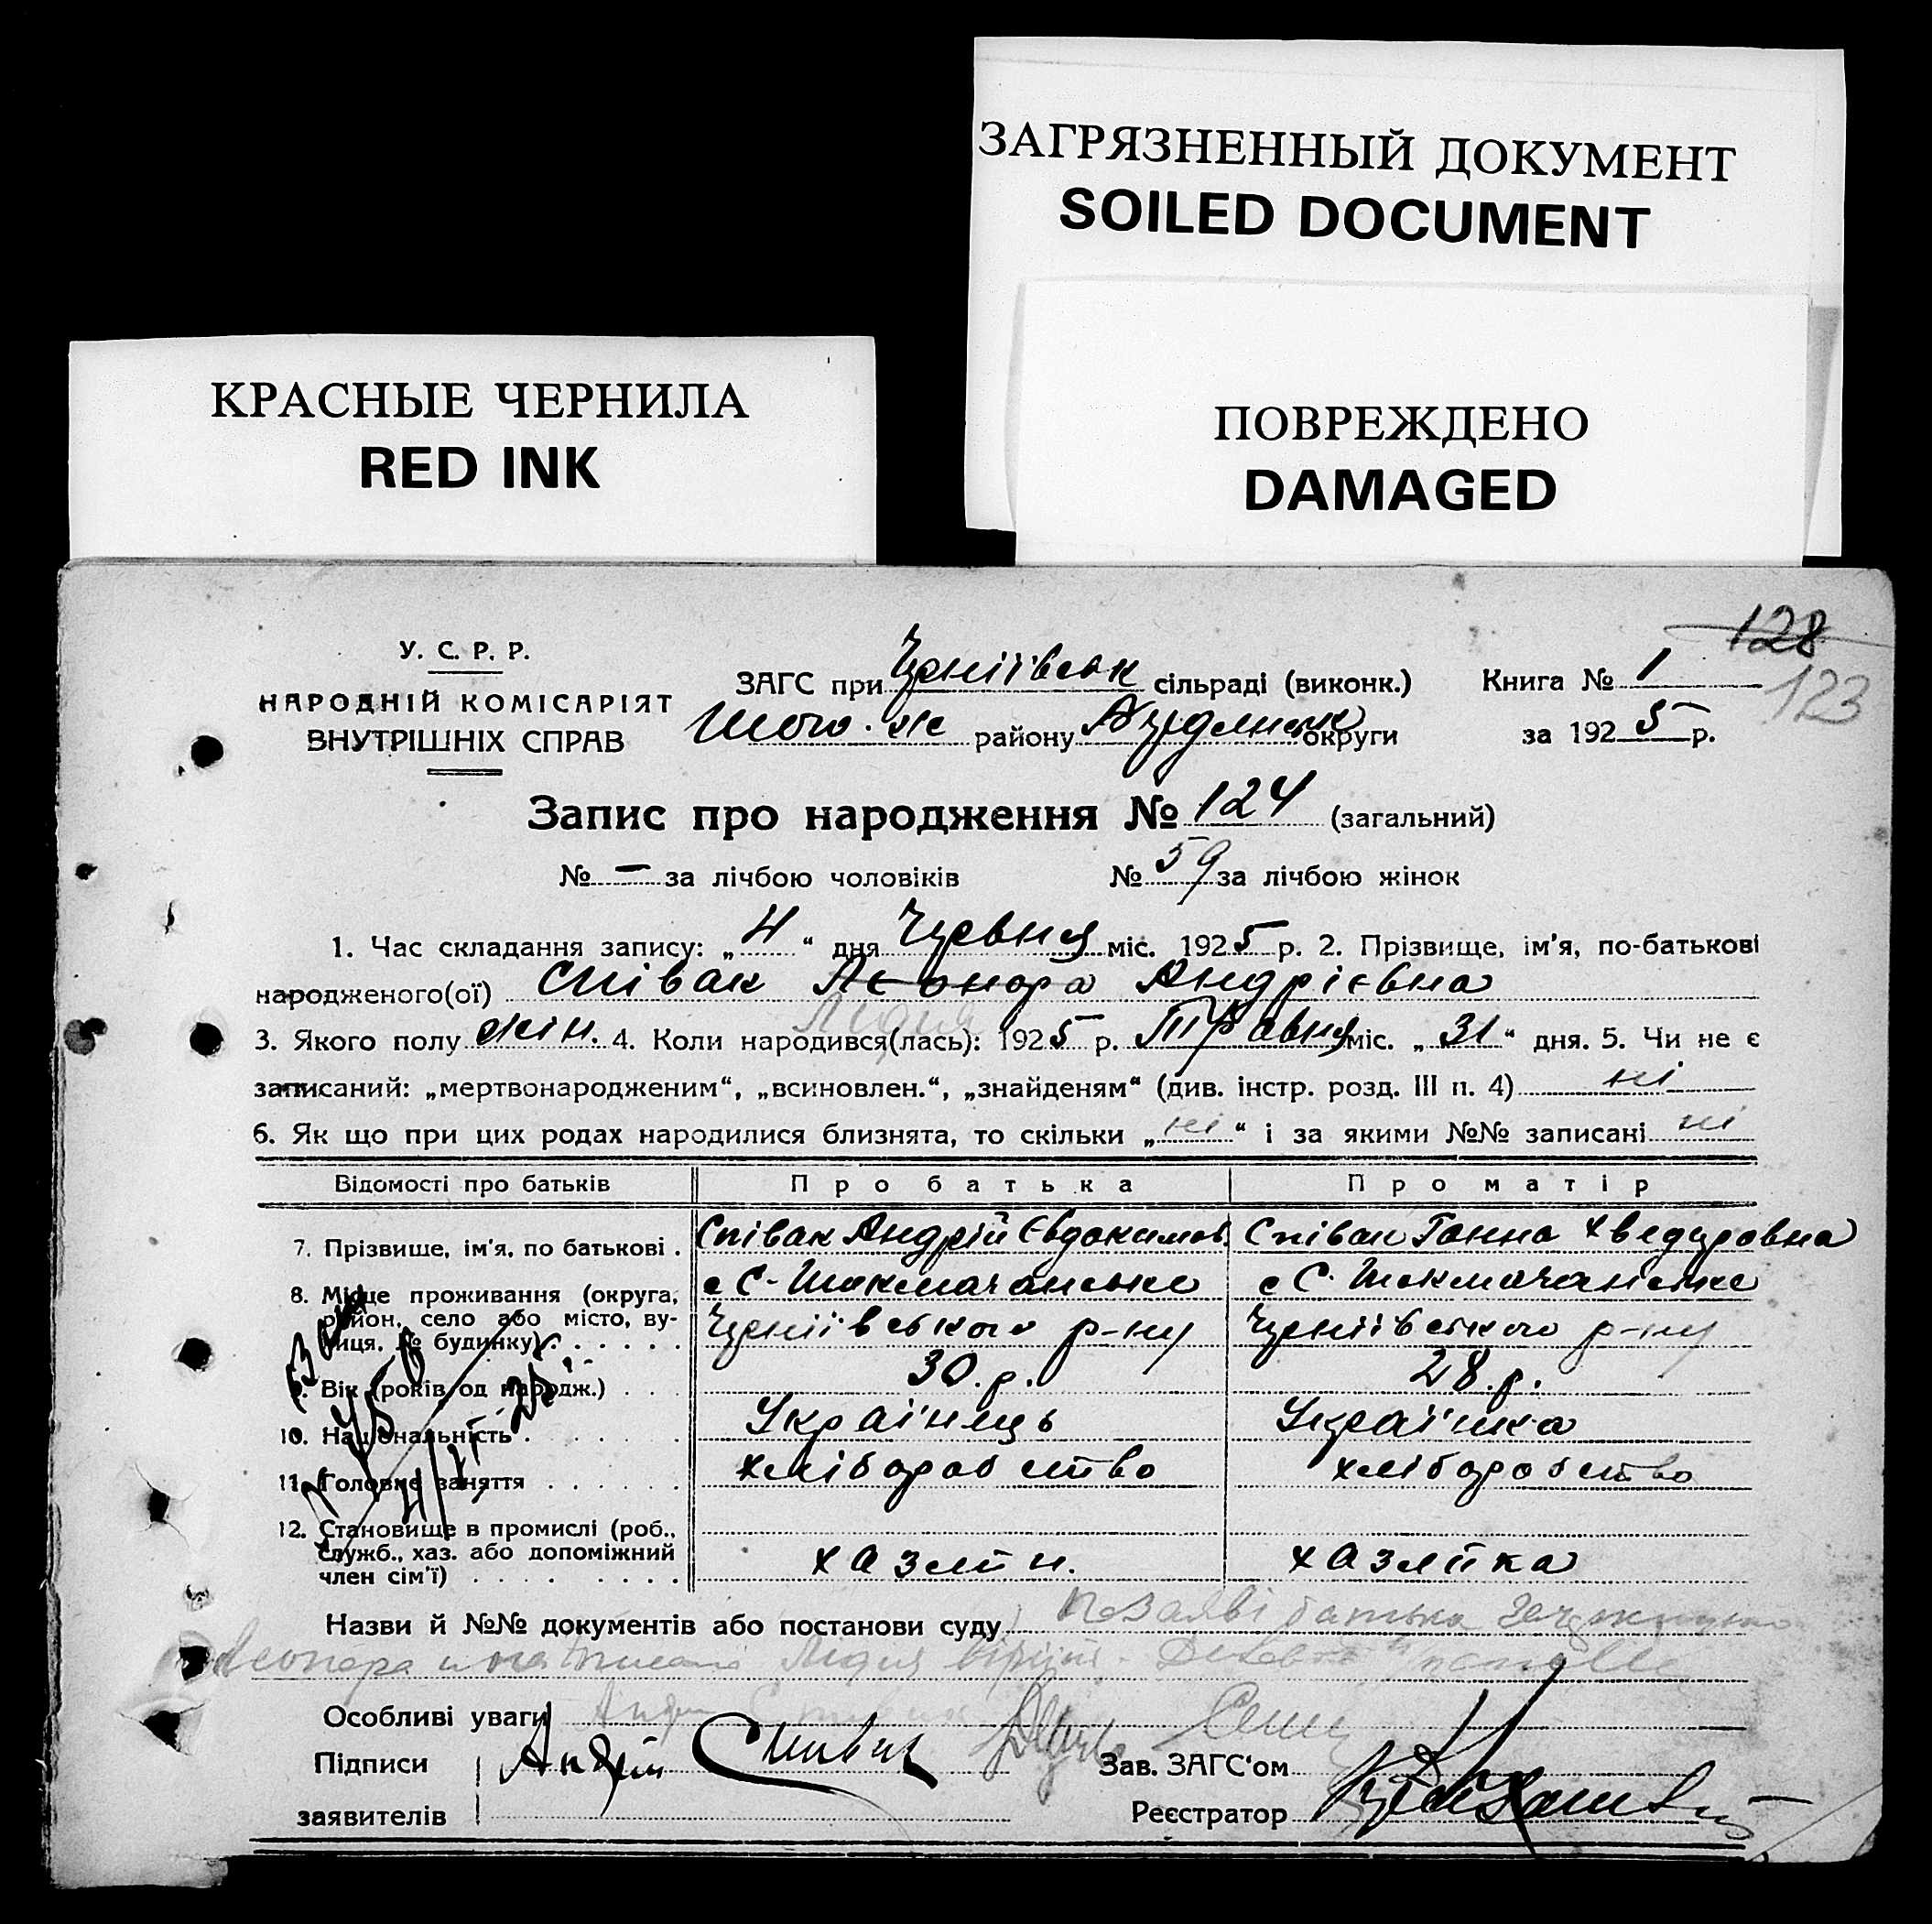 ЗАГРЯЗНЕННЫЙ ДОКУМЕНТ
SOILED DOCUMENT
КРАСНЫЕ ЧЕРНИЛА
RED INK
ПОВРЕЖДЕНО
DAMAGED
128
123
У. С. Р. Р.
НАРОДНІЙ КОМІСАРІЯТ
ВНУТРІШНІХ СПРАВ
ЗАГС при сільраді (виконк.) Книга № 1
району округи за 1925 р.
Запис про народження № 124 (загальний)
№ – за лічбою чоловіків № 59 за лічбою жінок
1. Час складання запису: „4“ дня Червня міс. 1925 р. 2. Прізвище, ім'я, по-батькові
народженого(ої) Співак Леонора Андрієвна
Лідия
3. Якого полу жін. 4. Коли народився(лась): 1925 р. Травня міс. „31“ дня. 5. Чи не є
записаний: „мертвонародженим“, „всиновлен.“, „знайденям“ (див. інстр. розд. III п. 4) ні
6. Як що при цих родах народилися близнята, то скільки „ні“ і за якими №№ записані ні
Відомості про батьків Про батька Про матір
7. Прізвище, ім'я, по батькові . Співак Андрій Євдокимов. Співак Ганна Хведуровна
8. Місце проживання (округа, район, село або місто, вулиця, № будинку)
р-ну р-ну
9. Вік (років од народж.) . . . 30 р. 28 р.
10. Національність . . . . . . Українець Українка
11. Головне заняття . . . . . . хліборобство хліборобство
12. Становище в промислі (роб.,
служб., хаз. або допоміжний
член сім'ї) . . . . . . . . хазяїн. хазяйка
Назви й №№ документів або постанови суду По заяві батька
Леонора Лідия
Особливі уваги
Підписи Андрій Співак Зав. ЗАГС'ом
заявителів Реєстратор